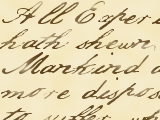 All Exper
hath shewn,
Mankind a
more dispos
to suffer, wh